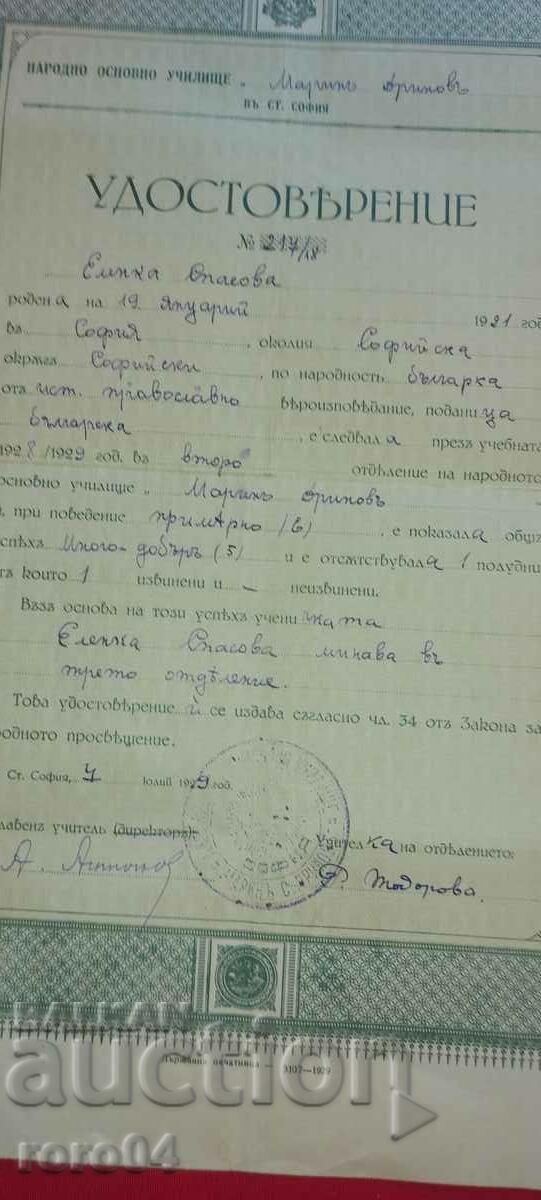 НАРОДНО ОСНОВНО УЧИЛИЩЕ „ Маринъ Дриновъ
ВЪ СТ. СОФИЯ
УДОСТОВѢРЕНИЕ
№ 217/18
Еленка Спасова
родена на 19 Януарий 1921 год
въ София, околия Софийска
окрѫгъ Софийски, по народность българка
отъ ист. православно вѣроизповѣдание, подани ца
българска, е следвала презъ учебната
1928/1929 год. въ второ отдѣление на народното
основно училище „ Маринъ Дриновъ
при поведение примѣрно (6), е показала общъ
успѣхъ Много-добъръ (5) и е отсѫтствувала 1 полудни
отъ които 1 извинени и - неизвинени.
Възъ основа на този успѣхъ учени чката
Еленка Спасова минава въ
трето отдѣление.
Това удостовѣрение ѝ се издава съгласно чл. 34 отъ Закона за
родното просвѣщение.
Ст. София, 4 Юлий 1929 год.
лавенъ учитель (директоръ): Учителка на отдѣлението:
А. Р. Тодорова.
Държавна печатница — 3107—1929
BALKAN
auction
roro04